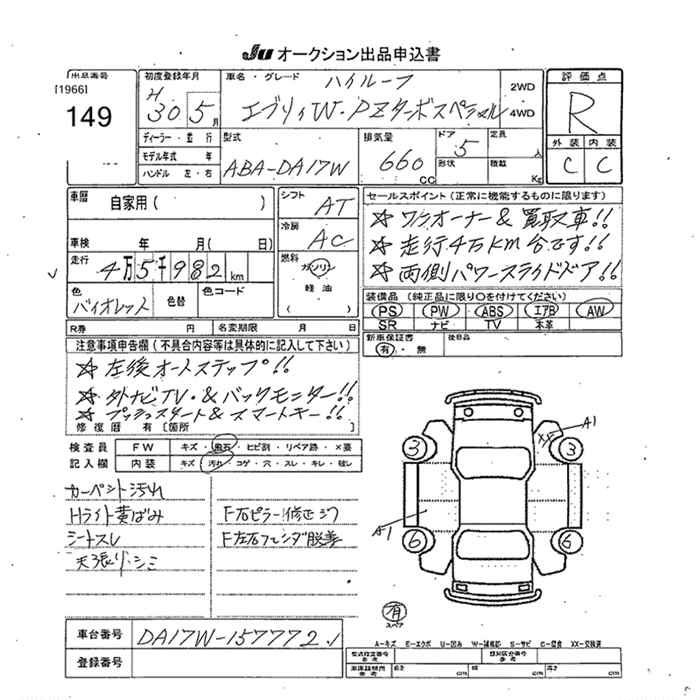 JU オークション出品申込書
出品番号
[1966]
149
初度登録年月
H 30 5月
車名・グレード
ハイルーフ
エブリィW・PZターボスペシャル
2WD
4WD
評価点
R
外装 内装
C C
ディーラー・並行
モデル年式 年
ハンドル 左・右
型式
ABA-DA17W
排気量
660 CC
ドア
5
形状
定員
人
積載
Kg
車歴
自家用( )
車検 年 月( 日)
走行
4万5千982 km
色
バイオレット
色替
色コード
シフト AT
冷房 AC
燃料
ガソリン
軽油
( )
R券 円 名変期限 月 日
セールスポイント(正常に機能するものに限ります)
☆ワンオーナー&買取車!!
☆走行4万km台です!!
☆両側パワースライドドア!!
装備品(純正品に限り○を付けてください)
PS PW ABS エアB AW
SR ナビ TV 本革
新車保証書 後日品
有・無
注意事項申告欄(不具合内容等は具体的に記入して下さい)
☆左後オートステップ!!
☆外ナビTV・&バックモニター!!
☆プッシュスタート&スマートキー!!
修復歴 有〔箇所
検査員 FW キズ・飛石・ヒビ割・リペア跡・×要
記入欄 内装 キズ・汚れ・コゲ・穴・スレ・キレ・破レ
カーペット汚れ
Hライト黄ばみ
シートスレ
天張り・シミ
F右ピラー修正ジワ
F左右フェンダ脱着
A1
3 3
A1
6 6
有
スペア
A-キズ E-エクボ U-凹み W-補修跡 S-サビ C-腐食 XX-交換済
車台番号 DA17W-157772
登録番号
型式指定番号 類別区分番号
車庫証明用 長さ cm 幅 cm 高さ cm